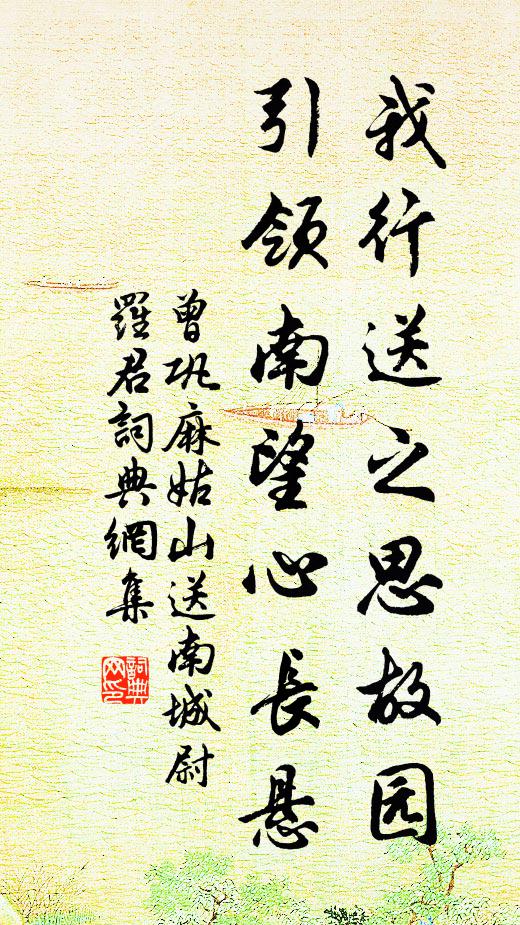 我行送之思故园
引领南望心長悬
曾巩麻姑山送南城尉
羅君詞典網集
詞典
网印